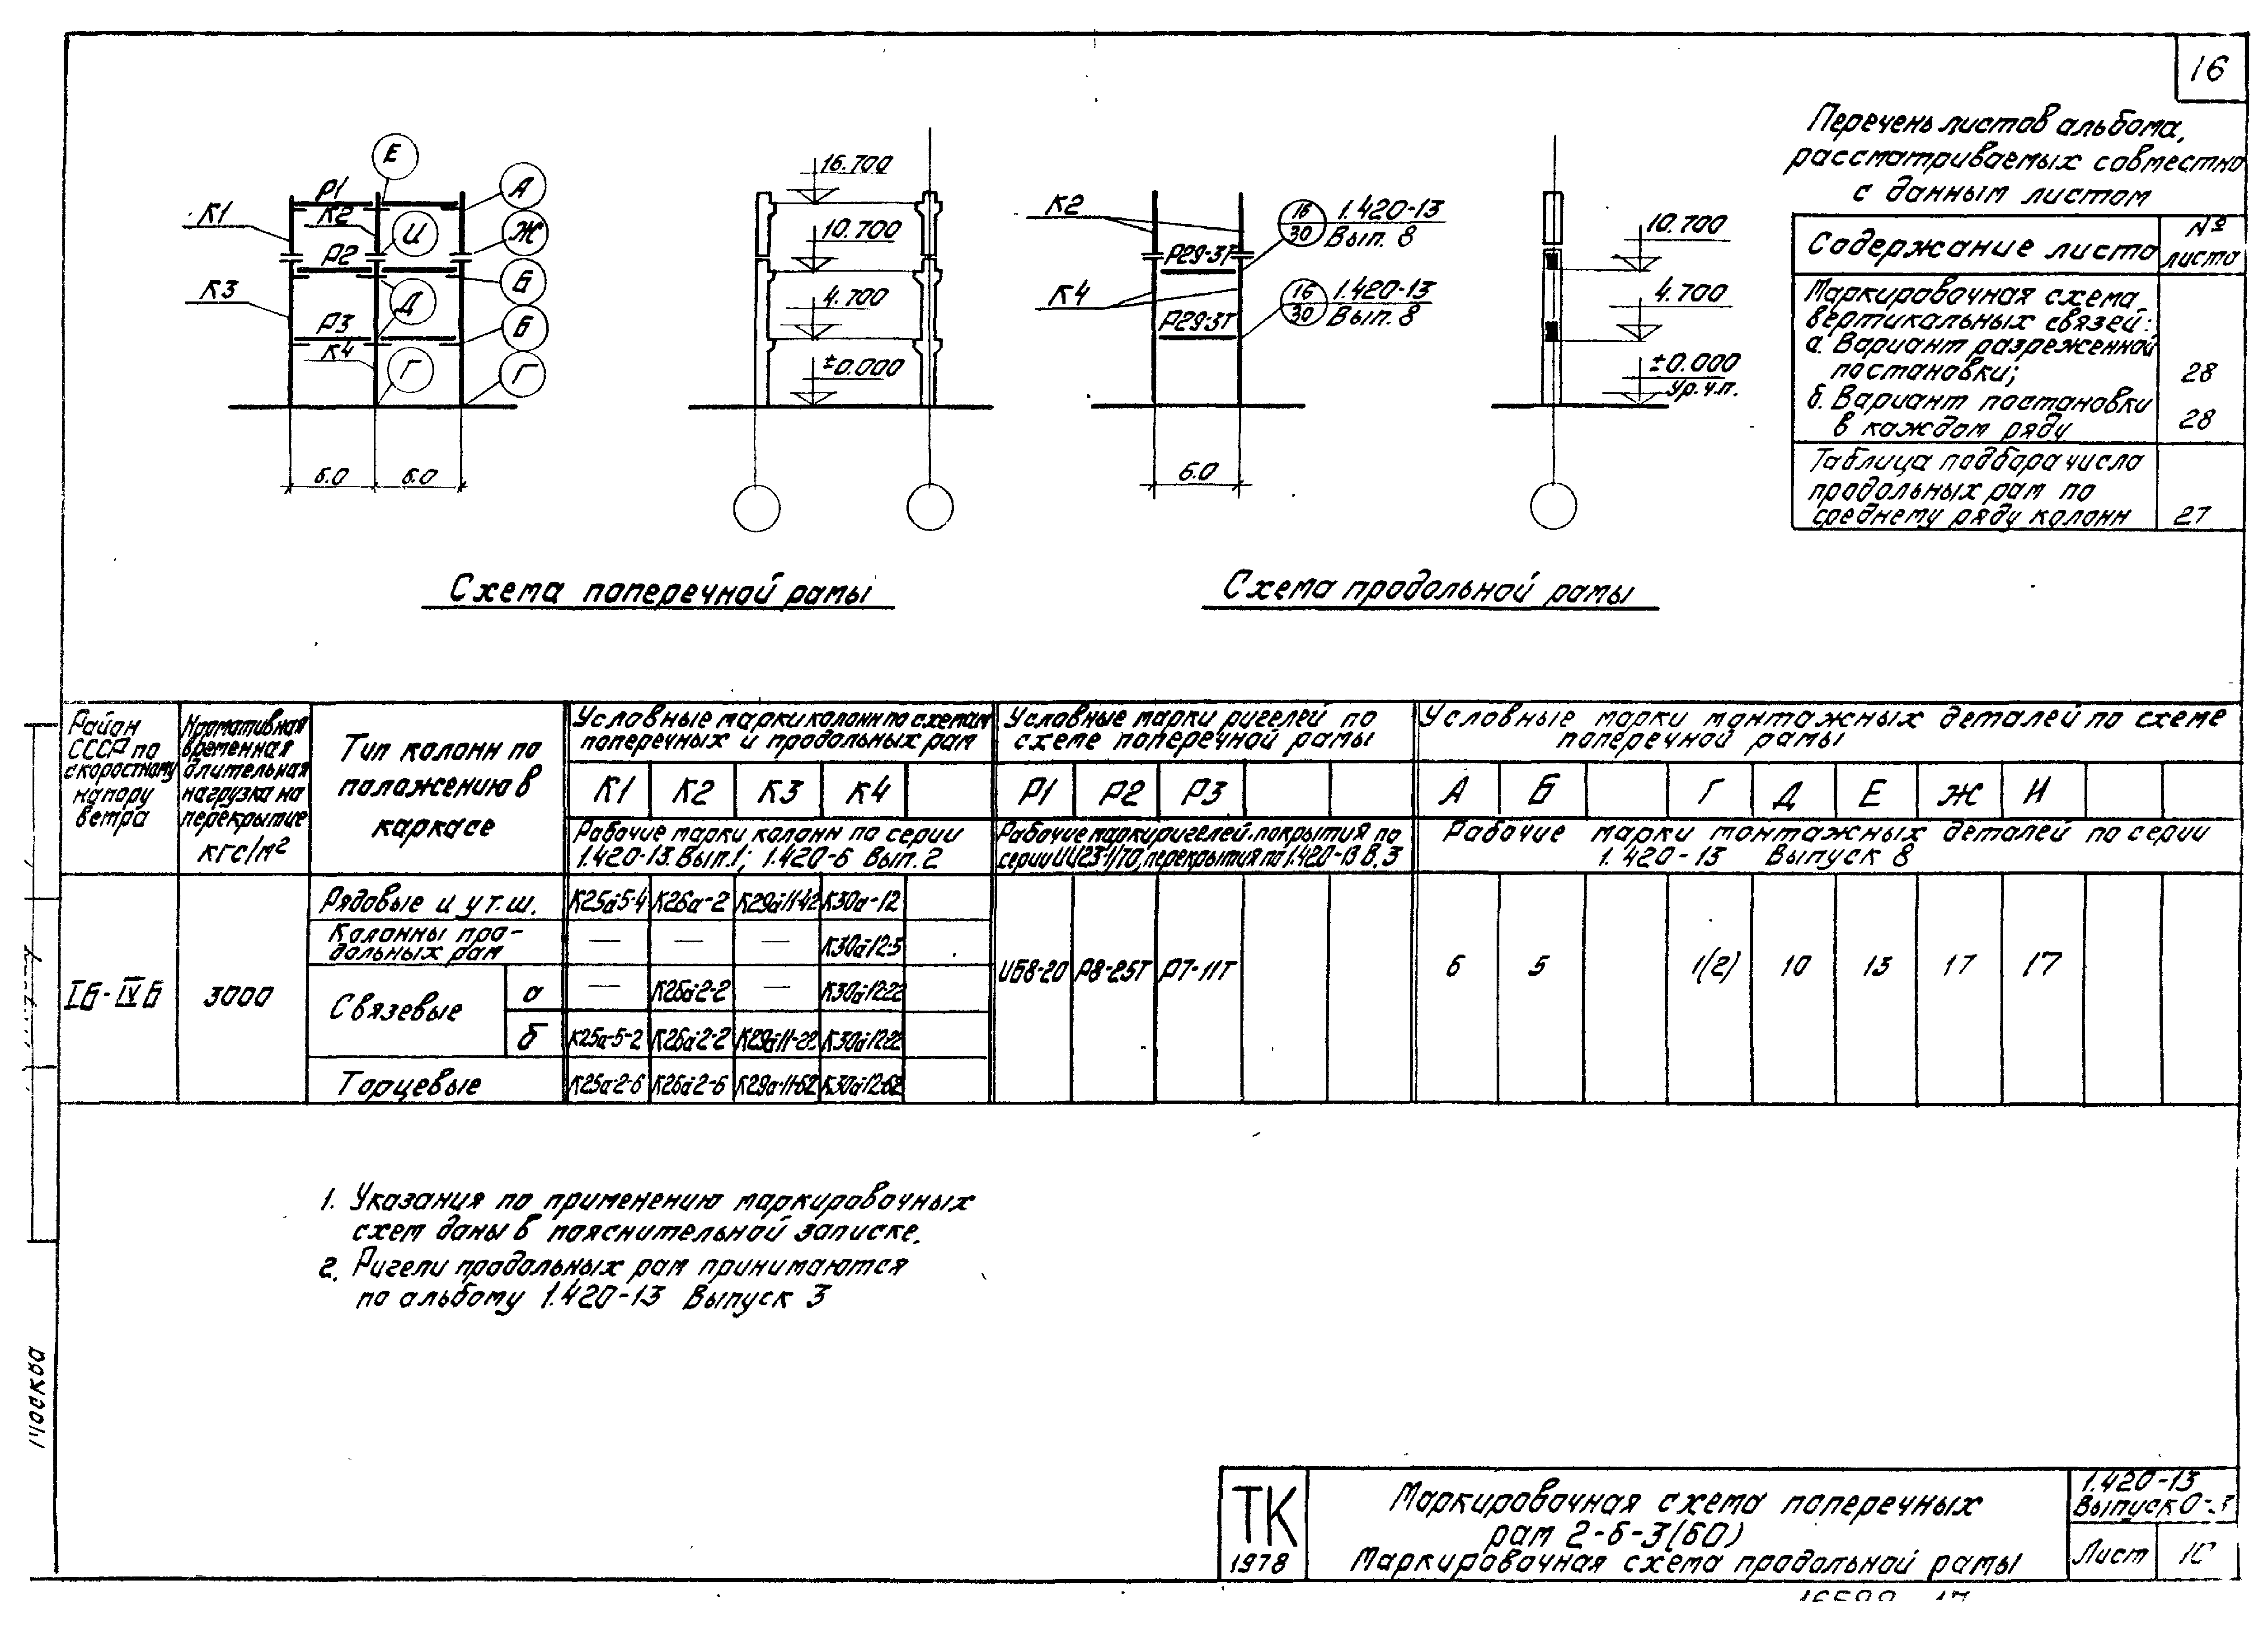 16
Перечень листов альбома,
рассматриваемых совместно
с данным листом
Содержание листа
№ листа
Маркировочная схема
вертикальных связей:
а. Вариант разреженной
постановки;
28
б. Вариант постановки
в каждом ряду
28
Таблица подбора числа
продольных рам по
среднему ряду колонн
27
Е
А
Р1
К1
К2
И
Ж
Р2
Б
К3
Д
Р3
Б
К4
Г
Г
6.0
6.0
16.700
10.700
4.700
±0.000
К2
16
30
1.420-13
Вып. 8
Р29-3Т
К4
16
30
1.420-13
Вып. 8
Р29-3Т
6.0
10.700
4.700
±0.000
Ур.ч.п.
Схема поперечной рамы
Схема продольной рамы
Район
СССР по
скоростному
напору
ветра
Нормативная
временная
длительная
нагрузка на
перекрытие
кгс/м²
Тип колонн по
положению в
каркасе
Условные марки колонн по схемам
поперечных и продольных рам
К1 К2 К3 К4
Рабочие марки колонн по серии
1.420-13. Вып.1; 1.420-6 Вып. 2
Условные марки ригелей по
схеме поперечной рамы
Р1 Р2 Р3
Рабочие марки ригелей: покрытия по
серии ИИ23-1/70, перекрытия по 1.420-13 В.3
Условные марки монтажных деталей по схеме
поперечной рамы
А Б Г Д Е Ж И
Рабочие марки монтажных деталей по серии
1.420-13 Выпуск 8
Iб-IVб
3000
Рядовые и у т.ш. К25а-5-4 К26а-2 К29а-11-42 К30а-12
Колонны про-
дольных рам — — — К30а-12-5
Связевые
а — К26а-2-2 — К30а-12-22
б К25а-5-2 К26а-2-2 К29а-11-22 К30а-12-22
Торцевые К25а-2-6 К26а-2-6 К29а-11-62 К30а-12-62
ИБ8-20 Р8-25Т Р7-11Т
6 5 1(2) 10 13 17 17
1. Указания по применению маркировочных
схем даны в пояснительной записке.
2. Ригели продольных рам принимаются
по альбому 1.420-13 Выпуск 3
Москва
ТК
1978
Маркировочная схема поперечных
рам 2-6-3(60)
Маркировочная схема продольной рамы
1.420-13
Выпуск 0-3
Лист